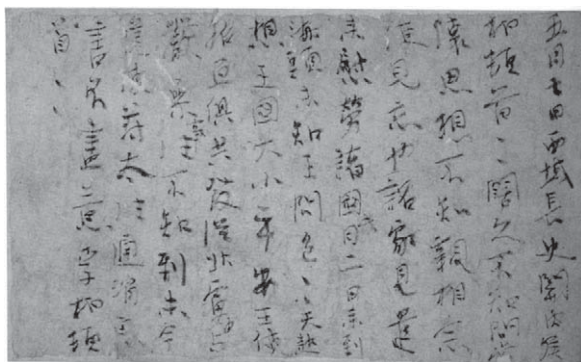 五月七日西域長史關内侯
柏頓首々闊久不知問常
懷思想不知親相念
便見忘也詔家見遣
來慰勞諸國月二日來到
海頭未知王問邑々天熱
想王國大小平安王使
招亘俱共發從北虜中與
嚴參事往不知到未今
遣使苻太往通消息
書不盡意李柏頓
首々